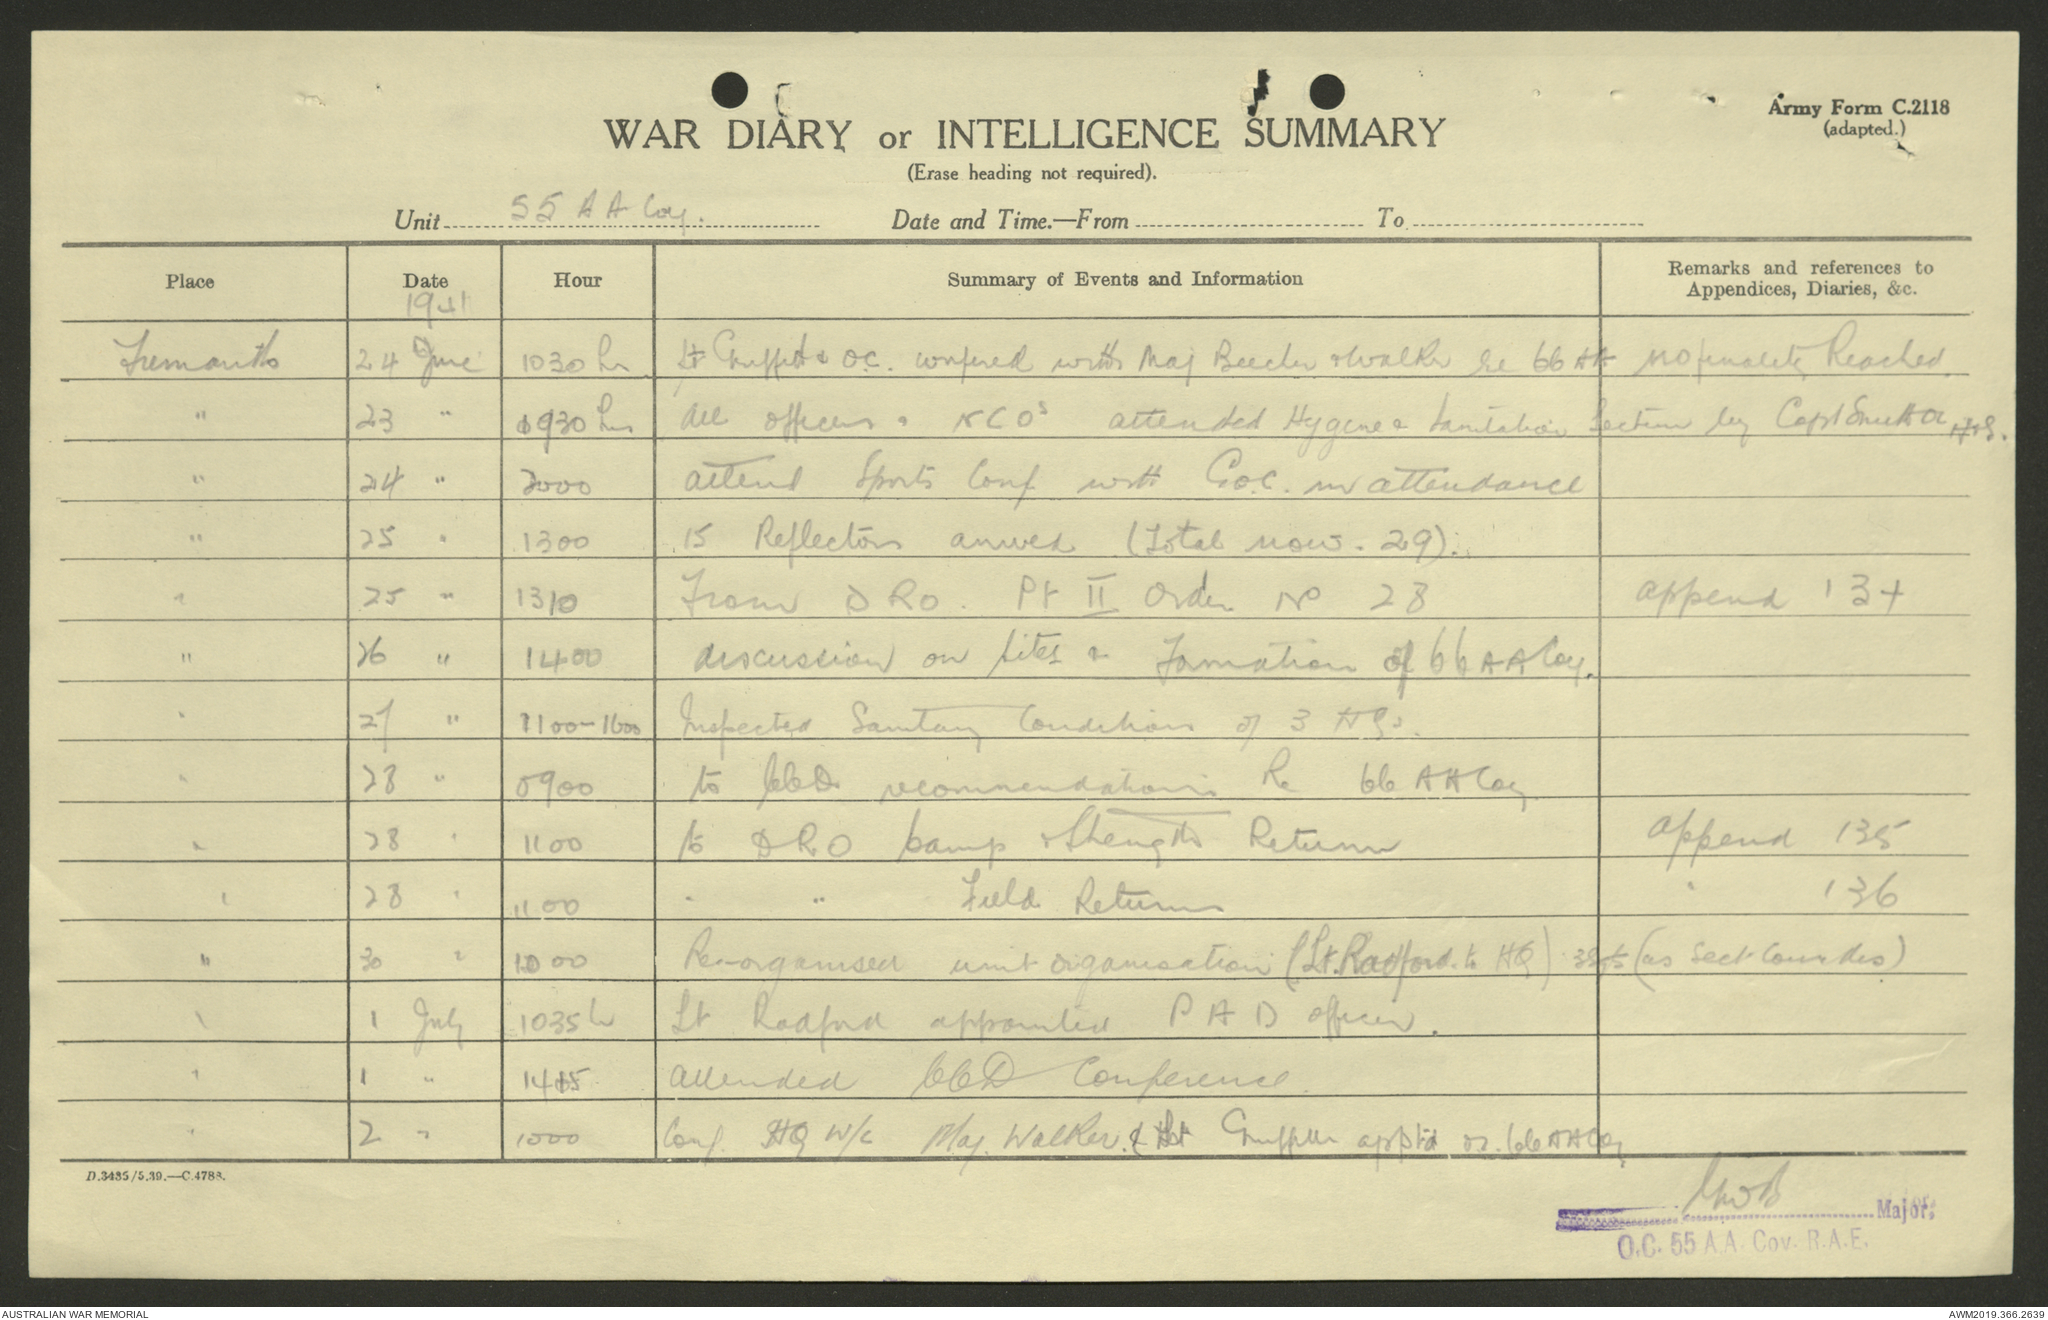 Army Form C.2118
(adapted.)
WAR DIARY or INTELLIGENCE SUMMARY
(Erase heading not required).
Unit 55 AA Coy. Date and Time.—From To
Place Date Hour Summary of Events and Information Remarks and references to Appendices, Diaries, &c.
1941
Fremantle 24 June 1030 hr Lt Griffith & O.C. confered with Maj Beecher & Walker re 66 AA no finality Reached.
" 23 " 0930 hrs All officers & NCOs attended Hygene & Sanitation Lecture by Capt
" 24 " 2000 attend Sports Conf with G.O.C. in attendance
" 25 " 1300 15 Reflectors arrived (Total now. 29).
" 25 " 1310 From DRO. Pt II Order No 28 append 134
" 26 " 1400 discussion on sites & Formation of 66 AA Coy.
" 27 " 1100-1600 Inspected Sanitary Conditions of 3 HQs.
" 28 " 0900 to CCD recommendations Re 66 AA Coy
" 28 " 1100 to DRO Camp & Strength Return append 135
" 28 " 1100 " " Field Returns " 136
" 30 " 1000 Re-organised unit organisation (Lt. Radford to HQ) (as Sect Comdrs)
" 1 July 1035 hr Lt Radford appointed P A D officer.
" 1 " 1415 attended CCD Conference.
" 2 " 1000 Conf. HQ W/C Maj. Walker. & Lt Griffith appt'd oc. 66 AA Coy
D.3435/5.39.—C.4788.
Major.
O.C. 55 A.A. Coy. R.A.E.
AUSTRALIAN WAR MEMORIAL AWM2019.366.2639